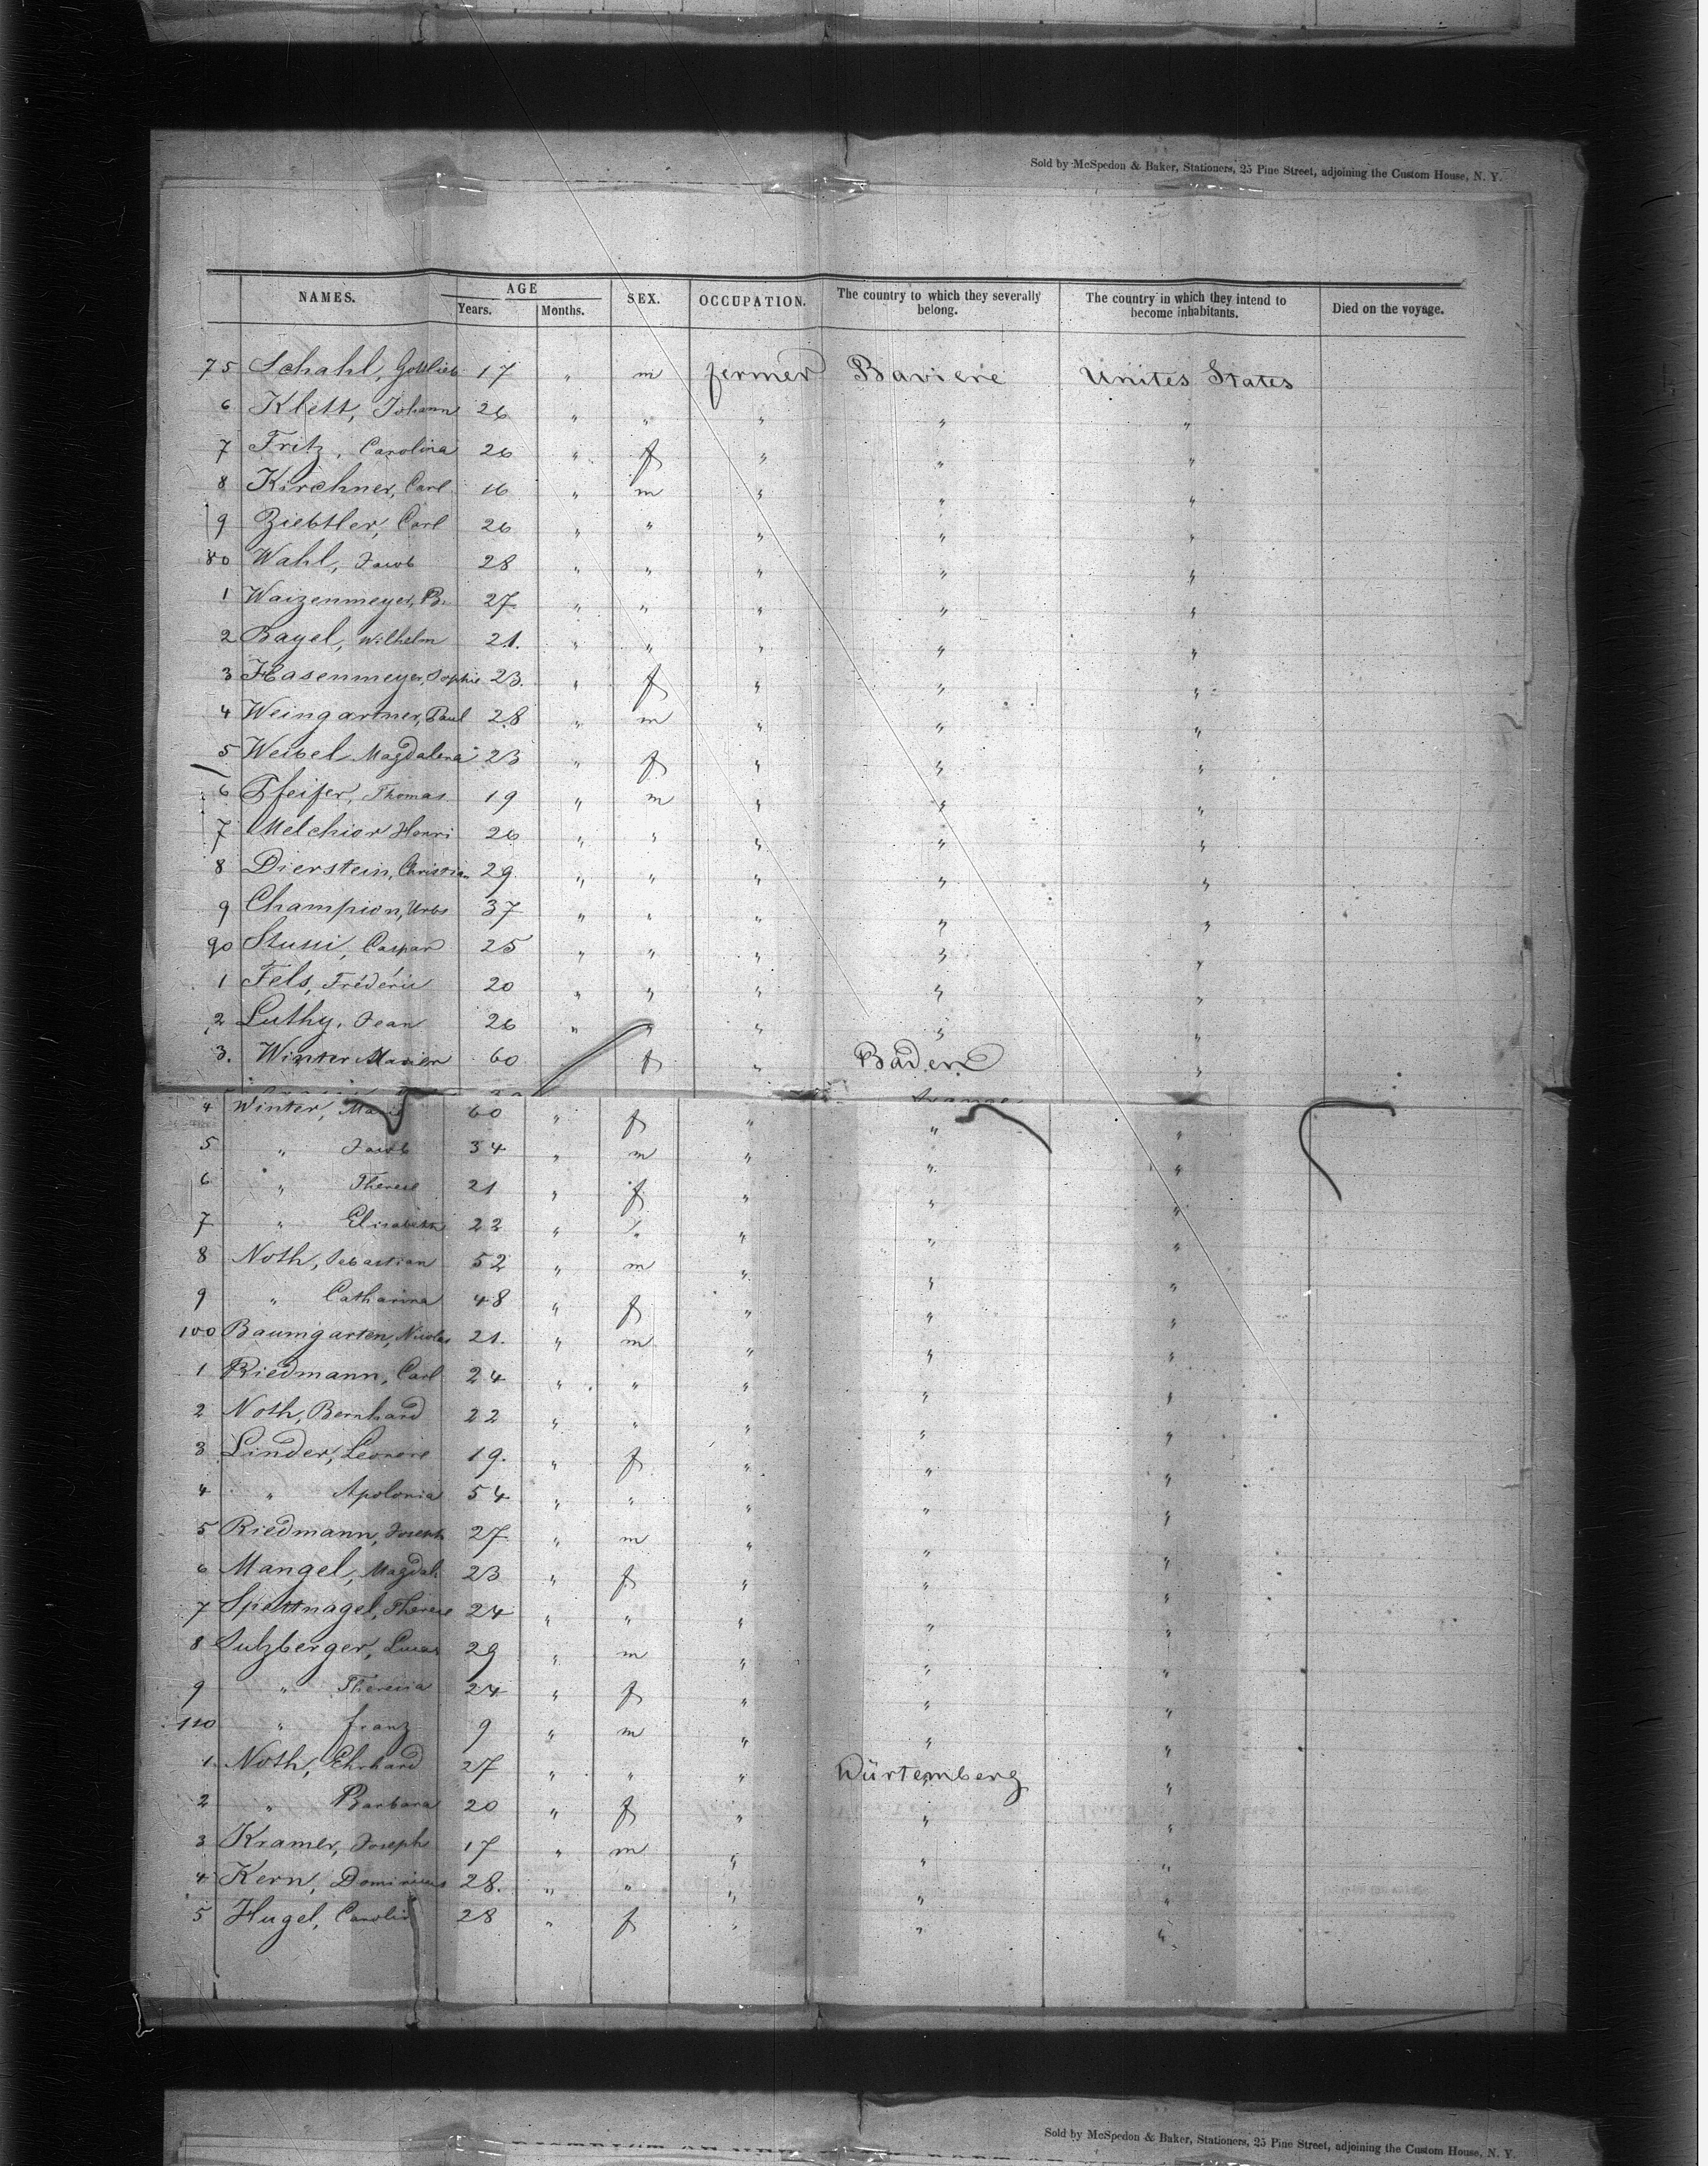 Sold by McSpedon & Baker, Stationers, 25 Pine Street, adjoining the Custom House, N. Y.
NAMES. AGE Years. Months. SEX. OCCUPATION. The country to which they severally belong. The country in which they intend to become inhabitants. Died on the voyage.
75 Schahl, Gottlieb 17 " m fermer Baviere Unites States
6 Klett, Johann 26 " " " " "
7 Fritz, Carolina 26 " f " " "
8 Kirchner, Carl 16 " m " " "
9 Ziebtler, Carl 26 " " " " "
80 Wahl, Jacob 28 " " " " "
1 Waizenmeyer, B. 27 " " " " "
2 Bayel, Wilhelm 21. " " " " "
3 Hasenmeyer, Sophie 23. " f " " "
4 Weingartner, Paul 28 " m " " "
5 Weibel Magdalena 23 " f " " "
6 Pfeifer, Thomas 19 " m " " "
7 Melchior Henri 26 " " " " "
8 Dierstein, Christian 29 " " " " "
9 Champion, Urbs 37 " " " " "
90 Stussi, Caspar 25 " " " " "
1 Fels, Fréderic 20 " " " " "
2 Luthy, Jean 26 " " " " "
3. Winter 60 f " Baden "
4 Winter, Marie 60 " f " " "
5 " Jacob 34 " m " " "
6 " Therese 21 " f " " "
7 " Elisabeth 22 " " " " "
8 Noth, Sebastian 52 " m " " "
9 " Catharina 48 " f " " "
100 Baumgarten, Nicolas 21. " m " " "
1 Riedmann, Carl 24 " " " " "
2 Noth, Bernhard 22 " " " " "
3 Linder, Leonore 19. " f " " "
4 " Apolonia 54 " " " " "
5 Riedmann, Joseph 27 " m " " "
6 Mangel, Magdal. 23 " f " " "
7 Spettnagel, Therese 24 " " " " "
8 Sulzberger, Lucas 29 " m " " "
9 " Theresia 24 " f " " "
110 " Franz 9 " m " " "
1 Noth, Ehrhard 27 " " " Würtemberg "
2 " Barbara 20 " f " " "
3 Kramer, Joseph 17 " m " " "
4 Kern, Dominicus 28. " " " " "
5 Hugel, Carolin 28 " f " " "
Sold by McSpedon & Baker, Stationers, 25 Pine Street, adjoining the Custom House, N. Y.